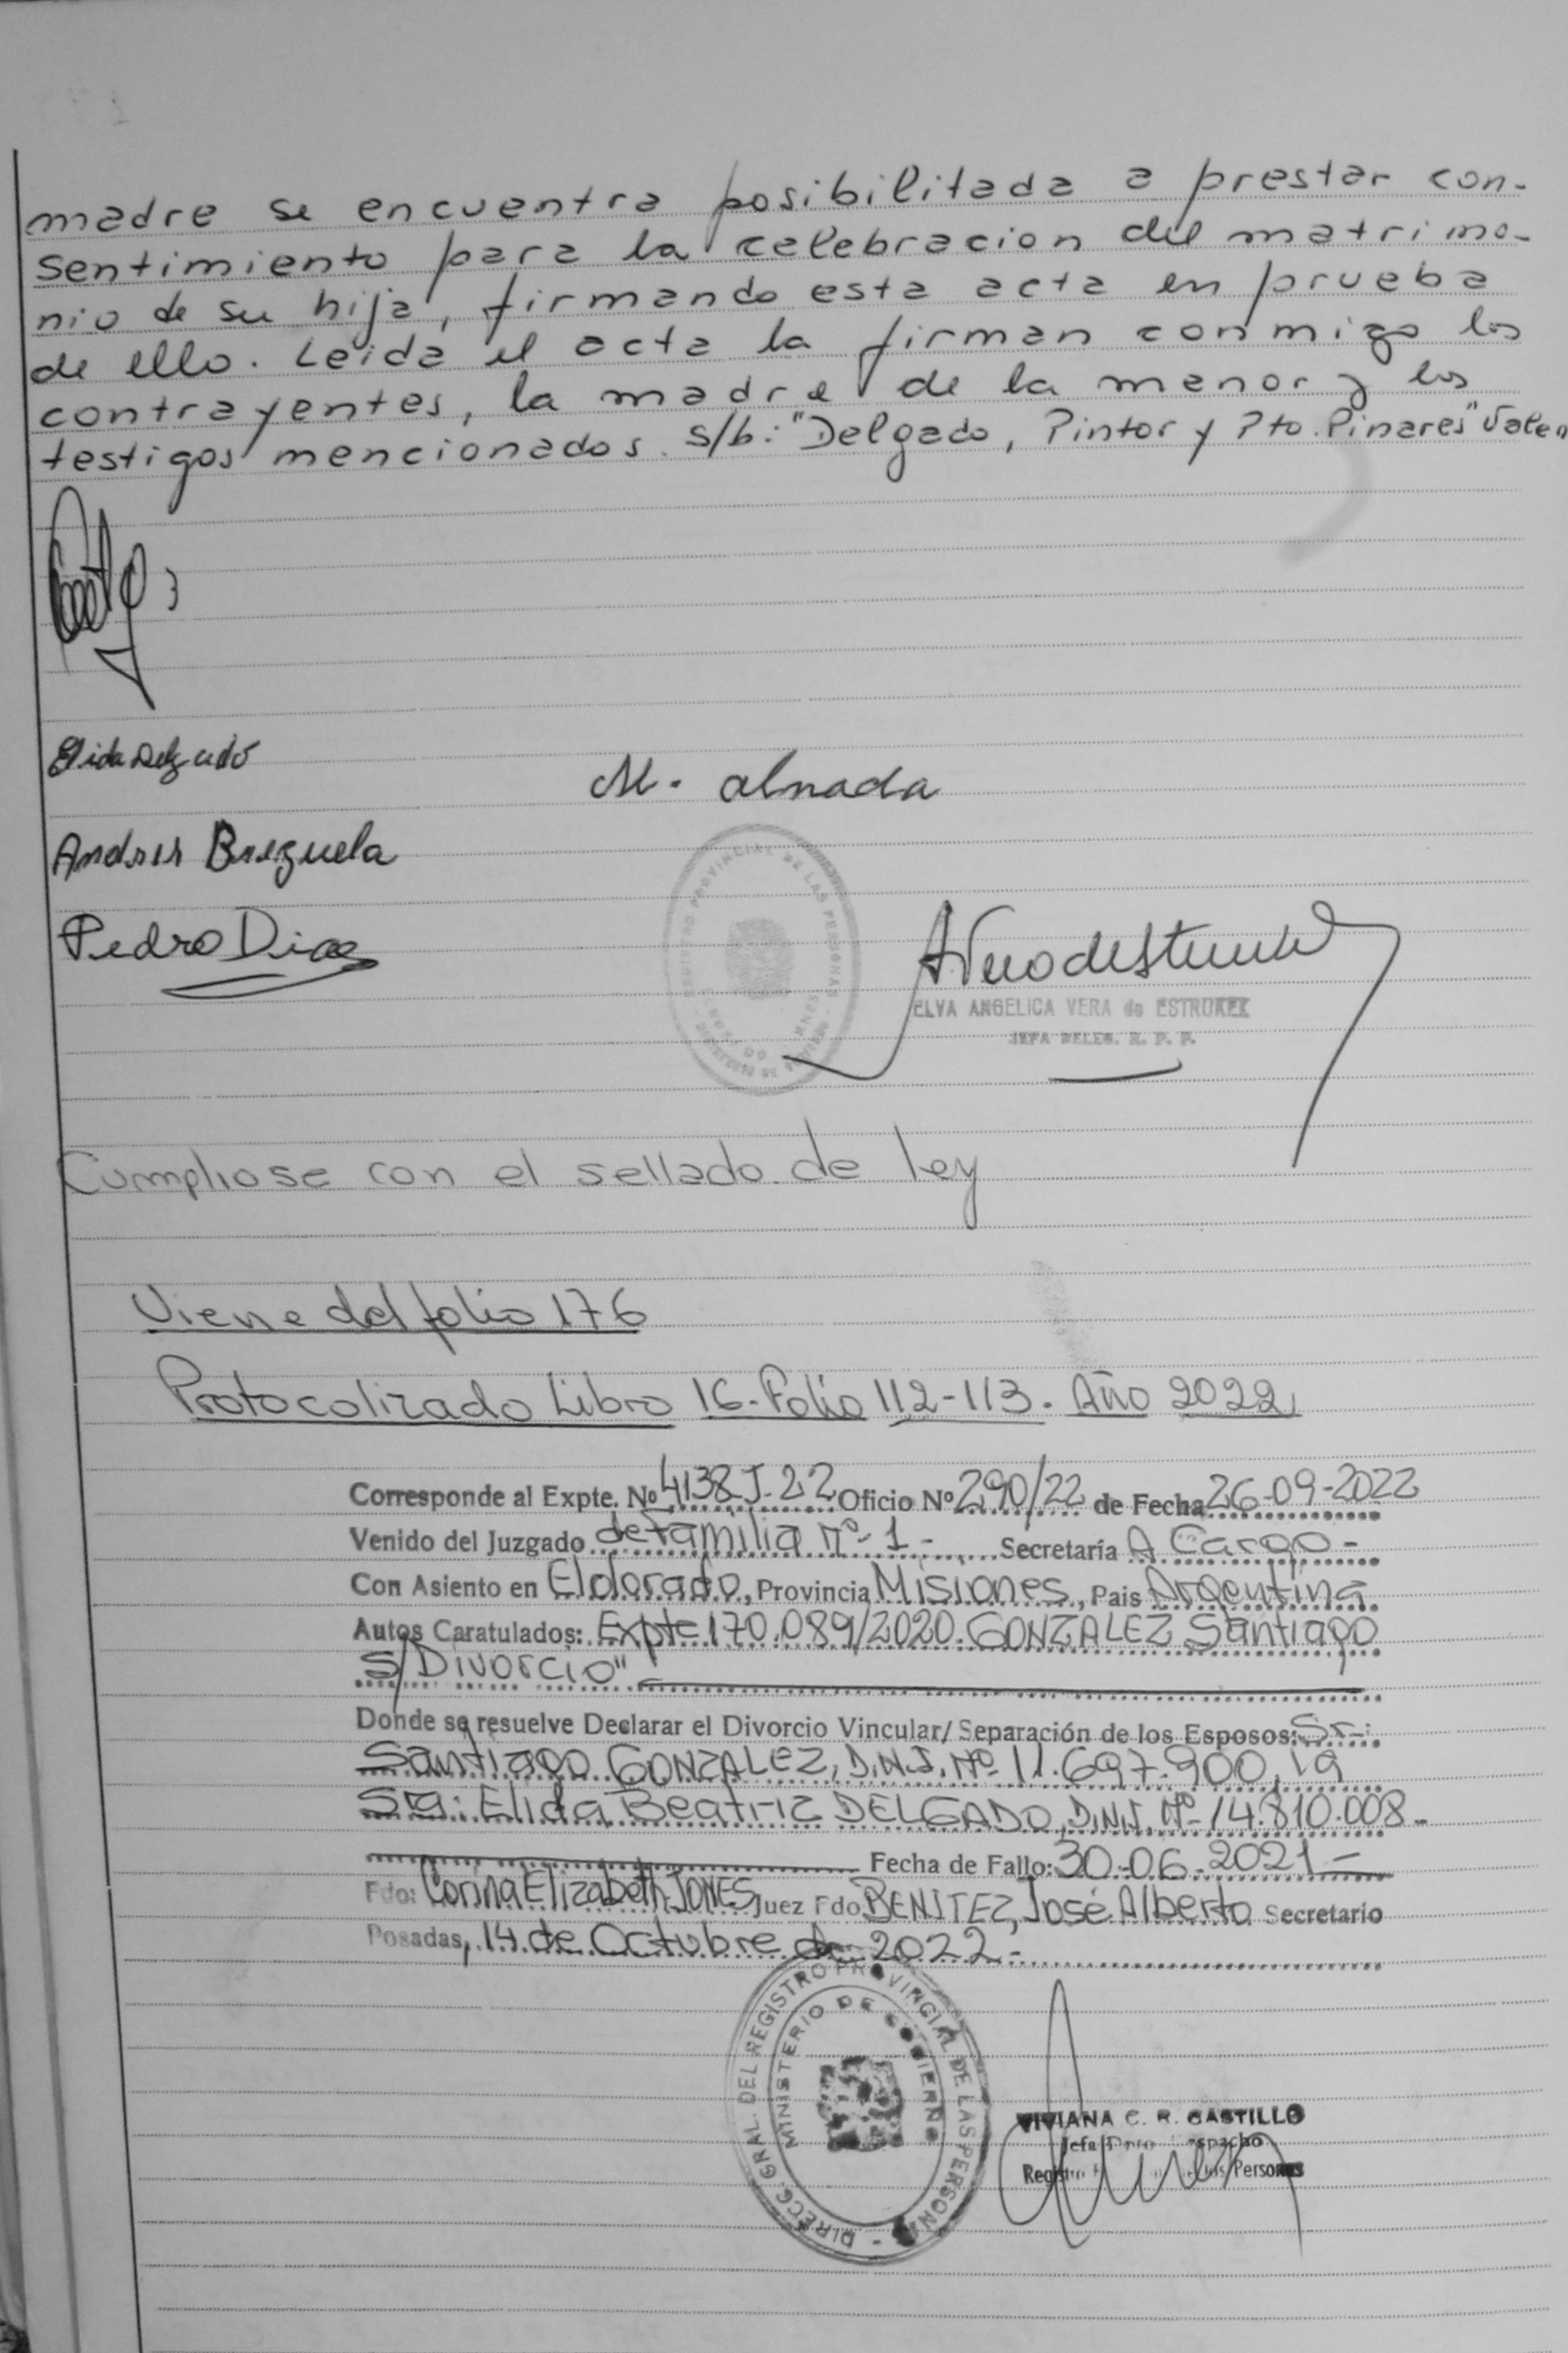 madre se encuentra posibilitada a prestar con-
sentimiento para la celebracion del matrimo-
nio de su hija, firmando esta acta en prueba
de ello. Leida el acta la firman conmigo los
contrayentes, la madre de la menor y los
testigos mencionados. s/b: "Delgado, Pintor y Pto. Pinares" Valen
Elida Delgado
M. Almada
Andres Brizuela
Pedro Diaz
REGISTRO PROVINCIAL DE LAS PERSONAS
ELVA ANGELICA VERA de ESTRUKEL
JEFA DELEG. R. P. P.
Cumpliose con el sellado de ley
Viene del folio 176
Protocolizado Libro 16-Folio 112-113. Año 2022
Corresponde al Expte. Nº 4138-J-22 Oficio Nº 290/22 de Fecha 26-09-2022
Venido del Juzgado de Familia Nº-1- Secretaría A Cargo-
Con Asiento en Eldorado, Provincia Misiones, Pais Argentina
Autos Caratulados: Expte 170.089/2020. GONZALEZ Santiago
S/Divorcio"
Donde se resuelve Declarar el Divorcio Vincular/ Separación de los Esposos: Sr.:
Santiago GONZALEZ, D.N.I. Nº 11.697.900, la
Sra: Elida Beatriz DELGADO, D.N.I. Nº 14.810.008-
Fecha de Fallo: 30-06-2021-
Fdo: Corina Elizabeth JONES Juez Fdo BENITEZ, José Alberto Secretario
Posadas, 14 de Octubre de 2022-
DIRECC. GRAL. DEL REGISTRO PROVINCIAL DE LAS PERSONAS
MINISTERIO DE GOBIERNO
VIVIANA C. R. CASTILLO
Jefa Dpto. Despacho
Registro de las Personas